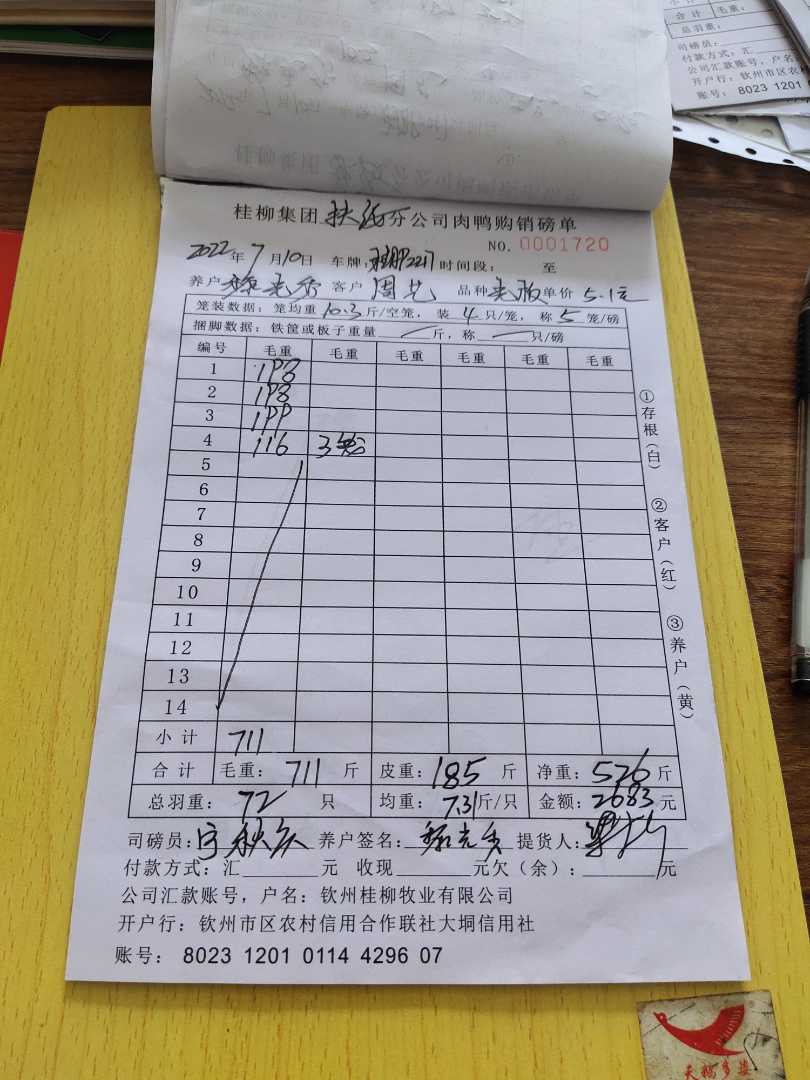 合计 毛重：
总羽重：
司磅员：
付款方式：汇
公司汇款账号，户名
开户行：钦州市区农
账号： 8023 1201
桂柳集团 扶绥 分公司肉鸭购销磅单
NO. 0001720
2022年7月10日 车牌： 时间段： 至
养户 客户 周 品种 单价 5.1元
笼装数据：笼均重 10.3 斤/空笼，装 4 只/笼，称 5 笼/磅
捆脚数据：铁筐或板子重量 斤，称 只/磅
编号 毛重 毛重 毛重 毛重 毛重 毛重
1 198
2 198
3 199
4 116 3
5
6
7
8
9
10
11
12
13
14
小计 711
合计 毛重： 711 斤 皮重： 185 斤 净重： 526 斤
总羽重： 72 只 均重： 7.31 斤/只 金额： 2683 元
司磅员： 养户签名： 提货人：
付款方式：汇 元 收现 元欠（余）： 元
公司汇款账号，户名：钦州桂柳牧业有限公司
开户行：钦州市区农村信用合作联社大垌信用社
账号： 8023 1201 0114 4296 07
①存根（白）
②客户（红）
③养户（黄）